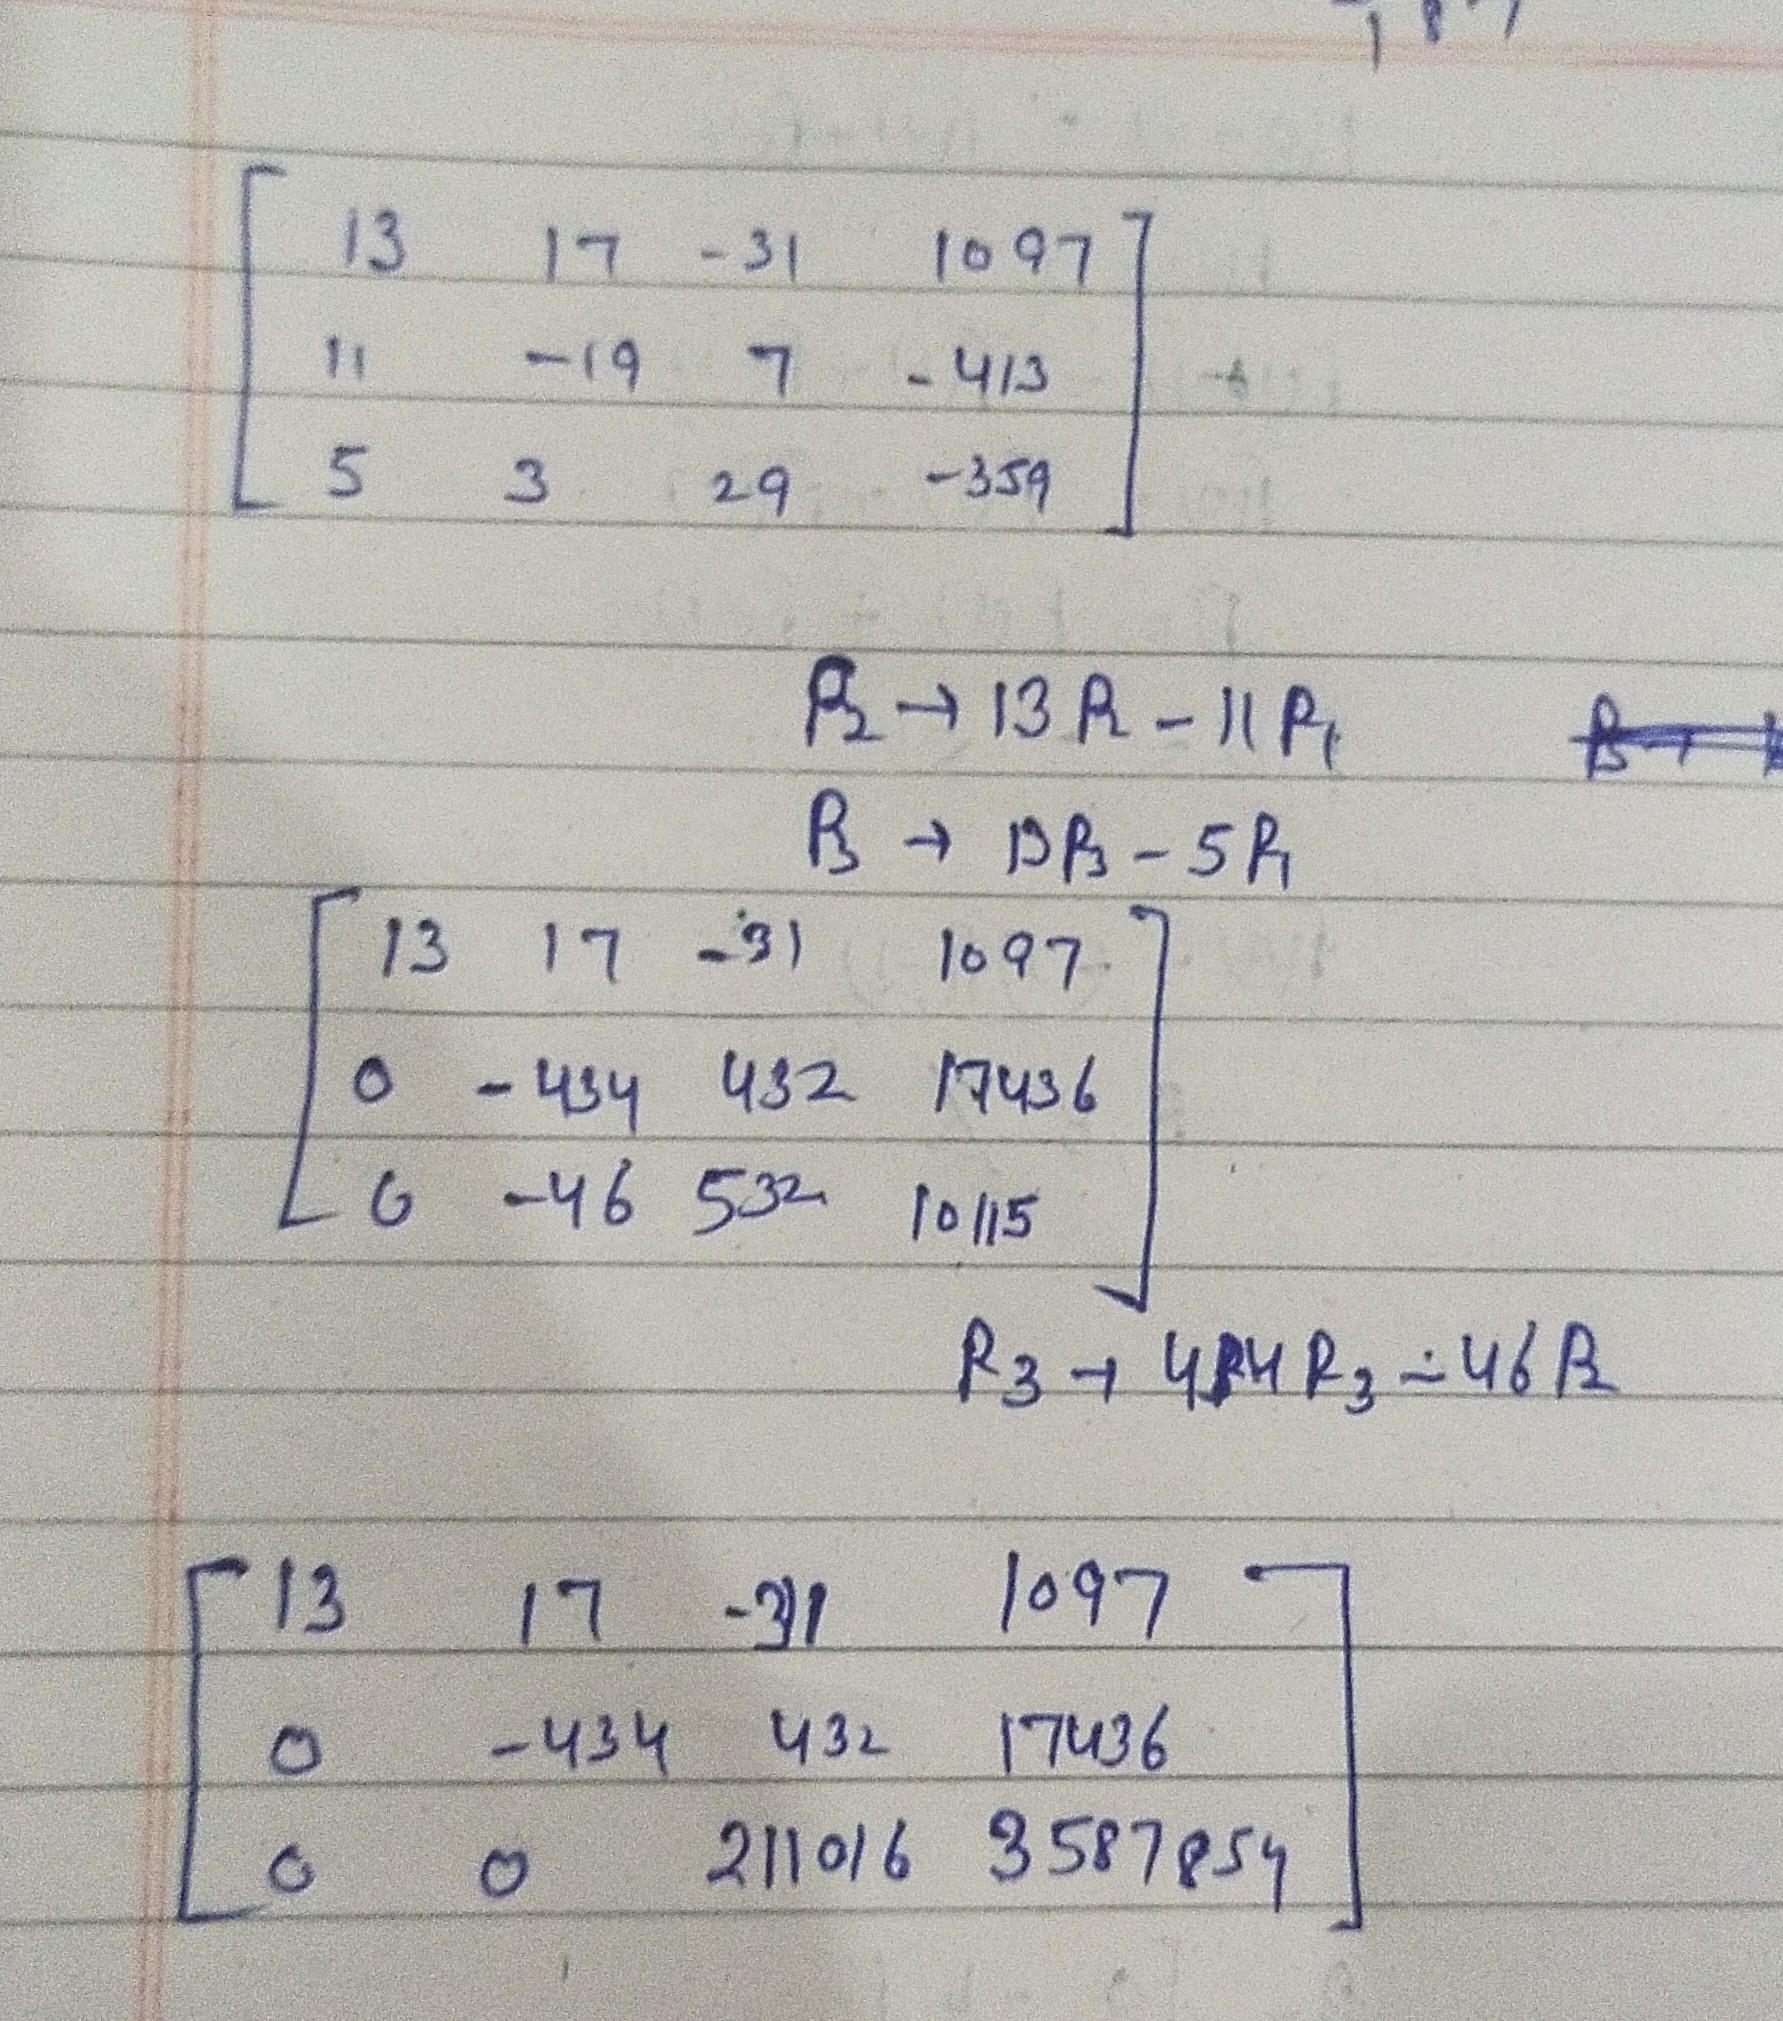 13 17 -31 1097
11 -19 7 -413
5 3 29 -359
R2 → 13R2 - 11R1
R3 → 13R3 - 5R1
13 17 -31 1097
0 -434 432 17436
0 -46 532 10115
R3 → 434R3 - 46R2
13 17 -31 1097
0 -434 432 17436
0 0 211016 3587854